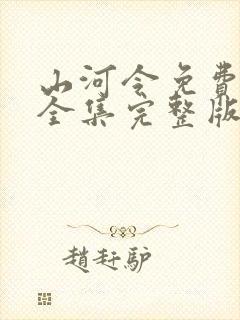 山河令免費
全集完整版
趙赶驴